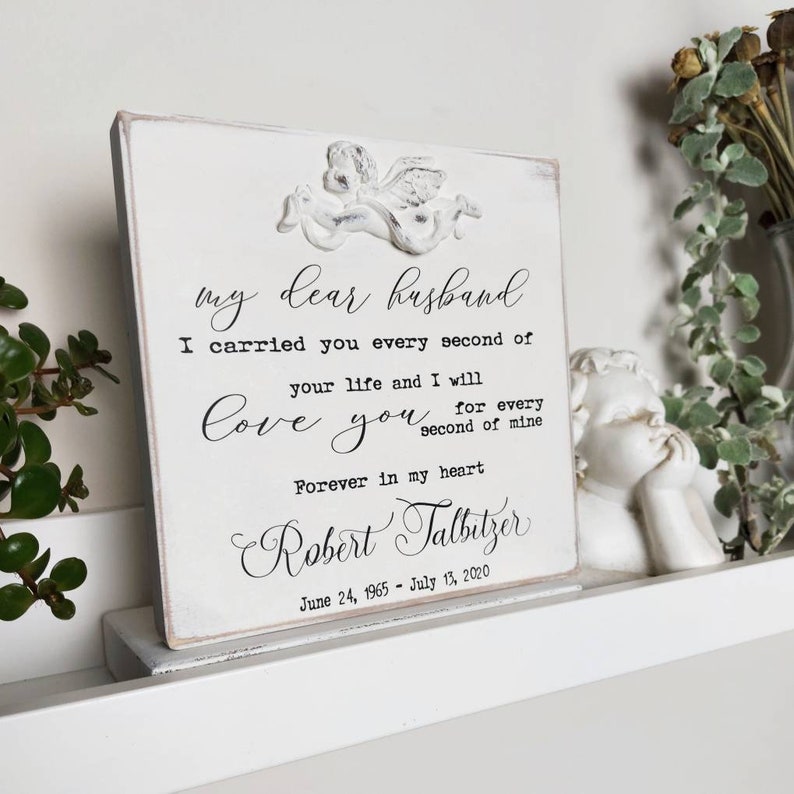 my dear husband
I carried you every second of
your life and I will
love you for every
second of mine
Forever in my heart
Robert Talbitzer
June 24, 1965 - July 13, 2020